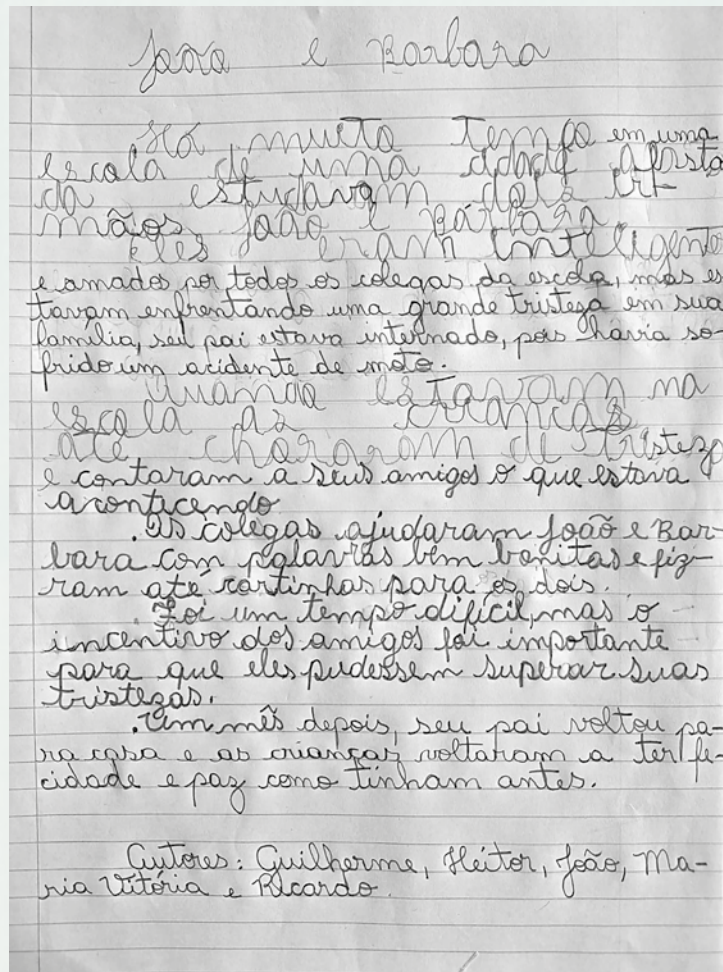 João e Barbara
Há muito tempo em uma
escola de uma cidade afasta
da estudavam dois ir-
mãos João e Bárbara.
Eles eram inteligente
e amados por todos os colegas da escola, mas es
tavam enfrentando uma grande tristeza em sua
família, seu pai estava internado, pois havia so-
frido um acidente de moto.
Quando estavam na
escola as crianças
até choraram de tristeza
e contaram a seus amigos o que estava
acontecendo
.Os colegas ajudaram João e Bar-
bara com palavras bem bonitas e fize-
ram até cartinhas para os dois.
.Foi um tempo difícil, mas o
incentivo dos amigos foi importante
para que eles pudessem superar suas
tristezas.
.Um mês depois, seu pai voltou pa-
ra casa e as crianças voltaram a ter fe-
cidade e paz como tinham antes.
Autores: Guilherme, Heitor, João, Ma-
ria Vitória e Ricardo.